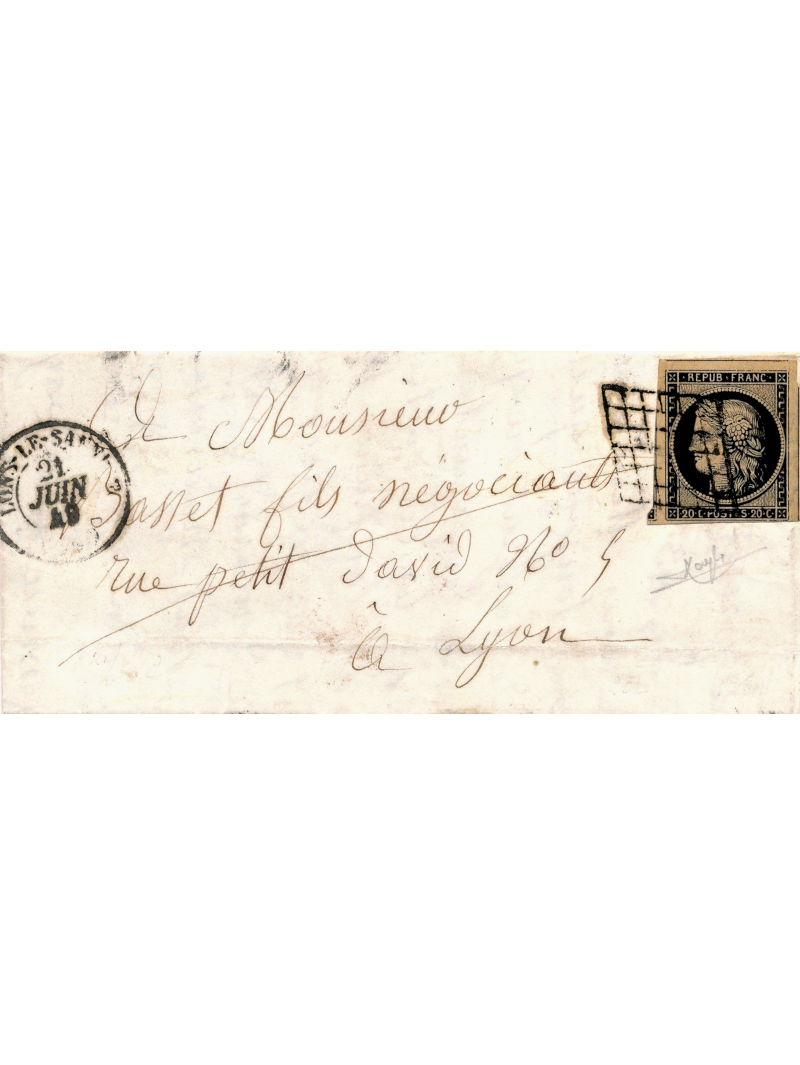 REPUB·FRANC·
20·C·POSTES·20·C·
LONS-LE-SAUN
21
JUIN
49
A Monsieur
Basset fils négociants
rue petit David No 5
à Lyon